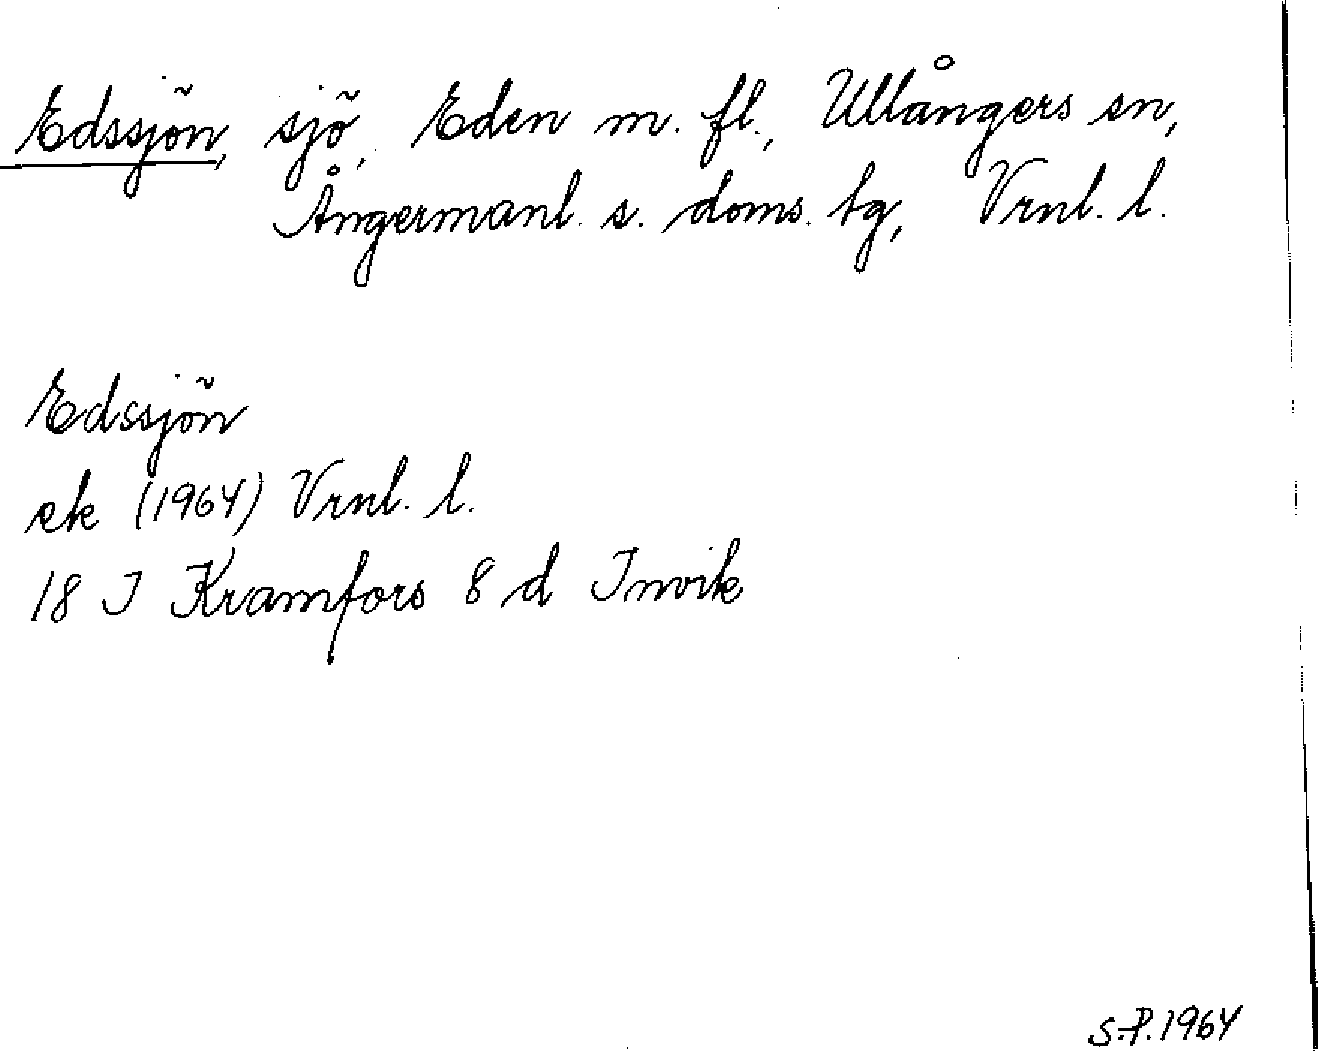 Edssjön, sjö, Eden m. fl., Ullångers sn,
Ångermanl. s. doms. tg, Vrnl. l.
Edssjön
ek (1964) Vrnl. l.
18 I Kramfors 8 d Invik
S.P. 1964